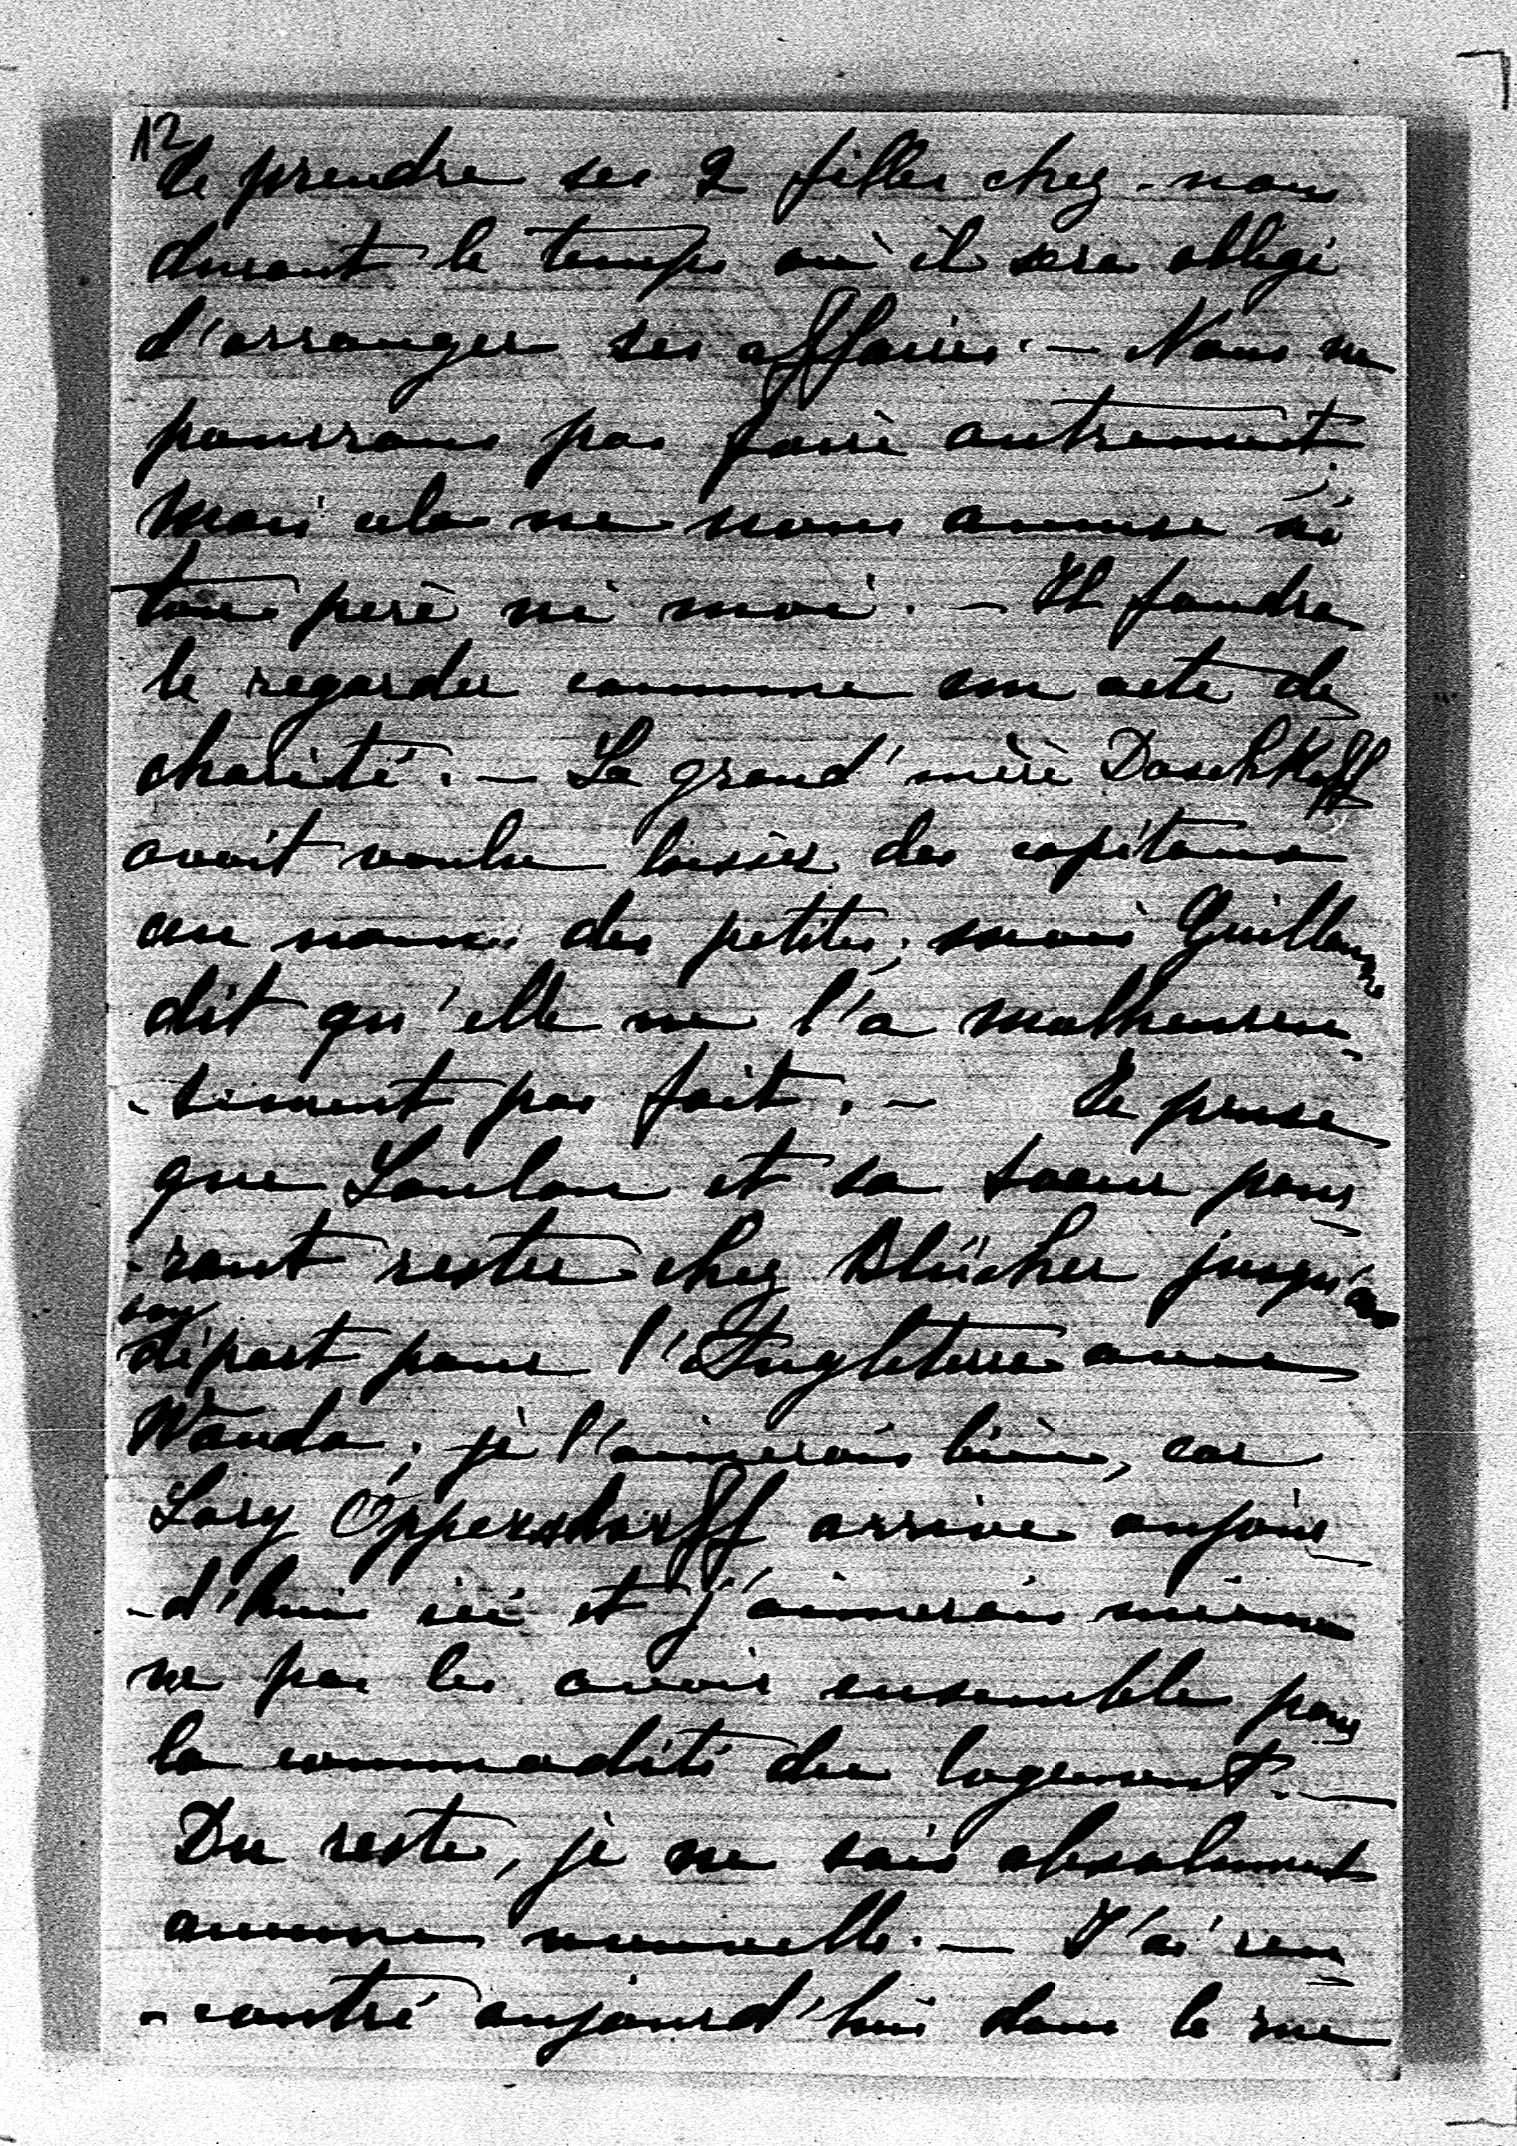 12
de prendre ses 2 filles chez-nous
durant le temps où il sera obligé
d'arranger ses affaires. — Nous ne
pourrons pas faire autrement,
mais cela ne nous amuse ni
ton père ni moi. — Il faudra
le regarder comme un acte de
charité. — La grand'mère Daschkoff
avait voulu laisser des capitaux
au nom des petites, mais Guillaume
dit qu'elle ne l'a malheureu-
-sement pas fait. — Je pense
que Loulou et sa soeur pour-
-ront rester chez Blücher jusqu'au
son
départ pour l'Angleterre avec
Wanda, je l'aimerais bien, car
Lory Oppersdorff arrive aujour-
-d'hui ici et j'aimerais mieux
ne pas les avoir ensemble pour
la commodité du logement. —
Du reste, je ne sais absolument
aucune nouvelle. — J'ai ren-
-contré aujourd'hui dans la rue